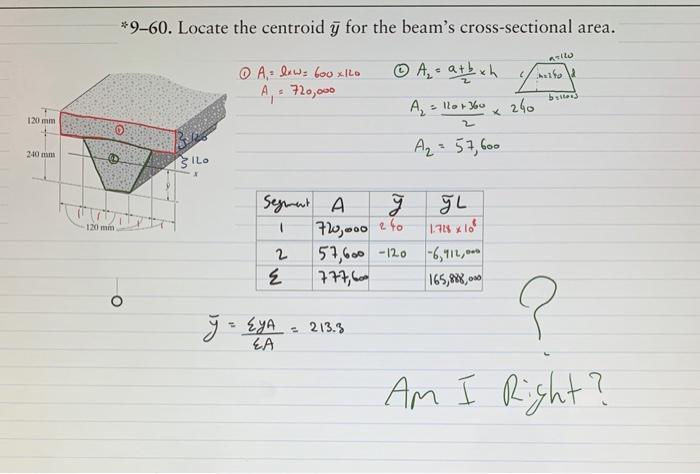 *9–60. Locate the centroid ȳ for the beam's cross-sectional area.
① A₁ = l×w = 600 × 120
A₁ = 720,000
② A₂ = a+b/2 × h
a=120
h=240
A₂ = 120+360/2 × 240
A₂ = 57,600
120 mm
240 mm
120 mm
①
②
120
x
Segment A ȳ ȳL
1 720,000 240 1.728 × 10⁸
2 57,600 -120 -6,912,000
Σ 777,600 165,888,000
ȳ = ΣyA/ΣA = 213.3
?
Am I Right?